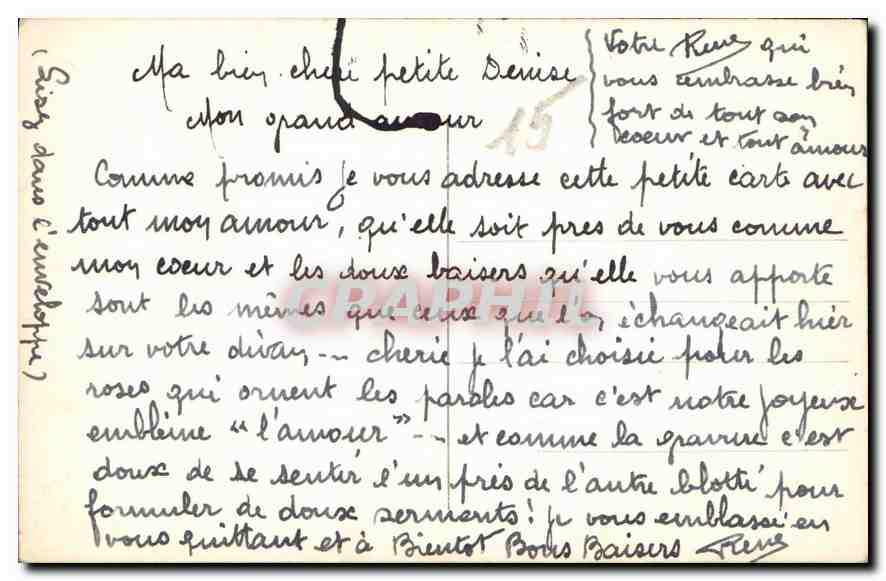 Ma bien cheri petite Denise
Mon grand amour
15
Votre René qui
vous embrasse bien
fort de tout son
coeur et tout amour
Comme promis je vous adresse cette petite carte avec
tout mon amour, qu'elle soit pres de vous comme
mon coeur et les doux baisers qu'elle vous apporte
sont les mêmes que ceux que l'on échangeait hier
sur votre divan -- cherie je l'ai choisie pour les
roses qui ornent les paroles car c'est notre joyeux
emblème "l'amour" -- et comme la gravure c'est
doux de se sentir l'un près de l'autre blotti pour
formuler de doux serments! je vous emblasse en
vous quittant et à Bientot Bons Baisers René
(Lisez dans l'enveloppe)
CPAPHIL